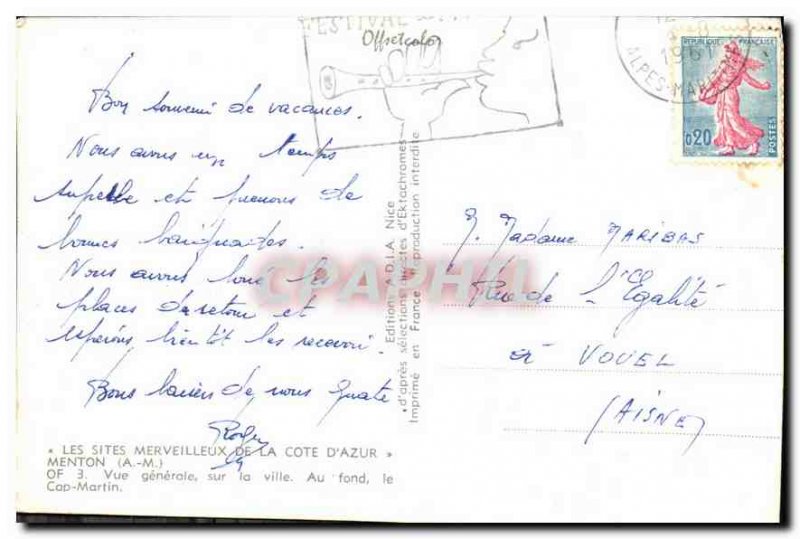 FESTIVAL
Offsetcolor
1961
ALPES-MARITIMES
REPUBLIQUE FRANÇAISE
0,20
POSTES
Bon souvenir de vacances.
Nous avons un temps
superbe et prenons de
bonnes baignades.
Nous avons loué les
places de retour et
espérons bientôt les recevoir.
Bons baisers de nous quatre
« LES SITES MERVEILLEUX DE LA COTE D'AZUR »
MENTON (A.-M.)
OF 3. Vue générale, sur la ville. Au fond, le
Cap-Martin.
Editions A.D.I.A. Nice
d'après sélections directes d'Ektachromes
Imprimé en France - Reproduction interdite
M. Madame MARIBAS
Rue de l'Egalité
à VOUEL
(AISNE)
CPAPHIL